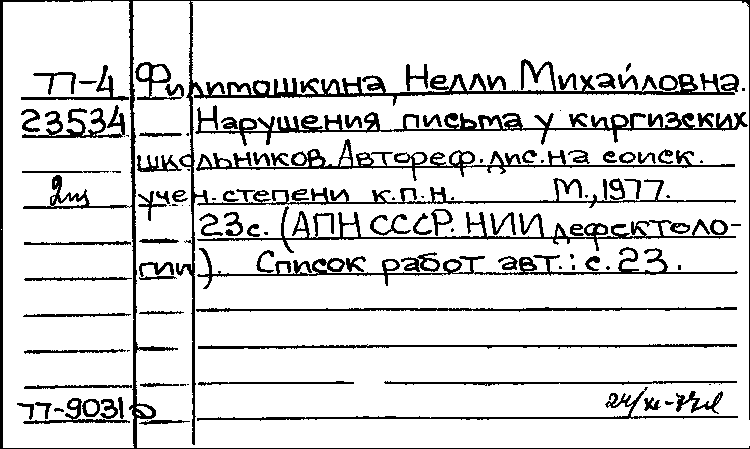 77-4 Филимошкина, Нелли Михайловна.
23534 Нарушения письма у киргизских
школьников. Автореф. дис. на соиск.
учен. степени к.п.н. М., 1977.
23с. (АПН СССР. НИИ дефектоло-
гии). Список работ авт.: с. 23.
77-9031